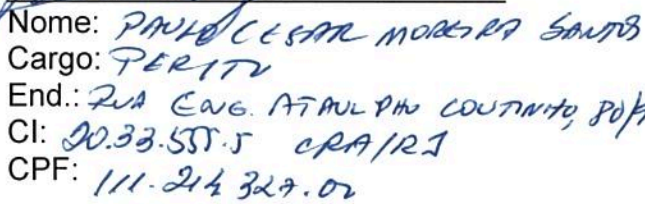 Nome: PAULO CESAR MOREIRA SANTOS
Cargo: PERITO
End.: RUA ENG. ATAULPHO COUTINHO, 80/
CI: 20.33.555.5 CRA/RJ
CPF: 111.214 327.02